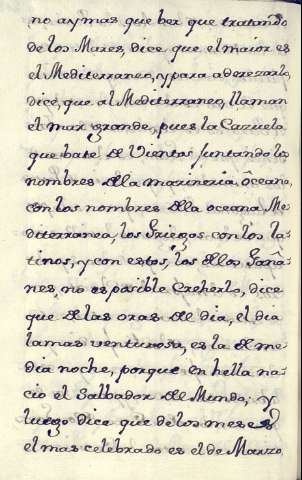 no ay mas que ber que tratando
de los Mares, dice que el maior es
el Mediterraneo, y para aderezarlo,
dice, que al Mediterraneo, llaman
el mar grande, pues la Cazuela
que bate de Vientos juntando los
nombres de la marineria oceana,
con los nombres de la oceana, Me-
diterranea, los Griegos con los la-
tinos, y con estos, los de los Romã-
nes, no es posible Creherlo, dice
que de las oras de dia, el dia
la mas venturosa, es la de me-
dia noche, porque en hella na-
cio el Salbador del Mundo; y
luego dice que de los meses
el mas celebrado es el de Marzo